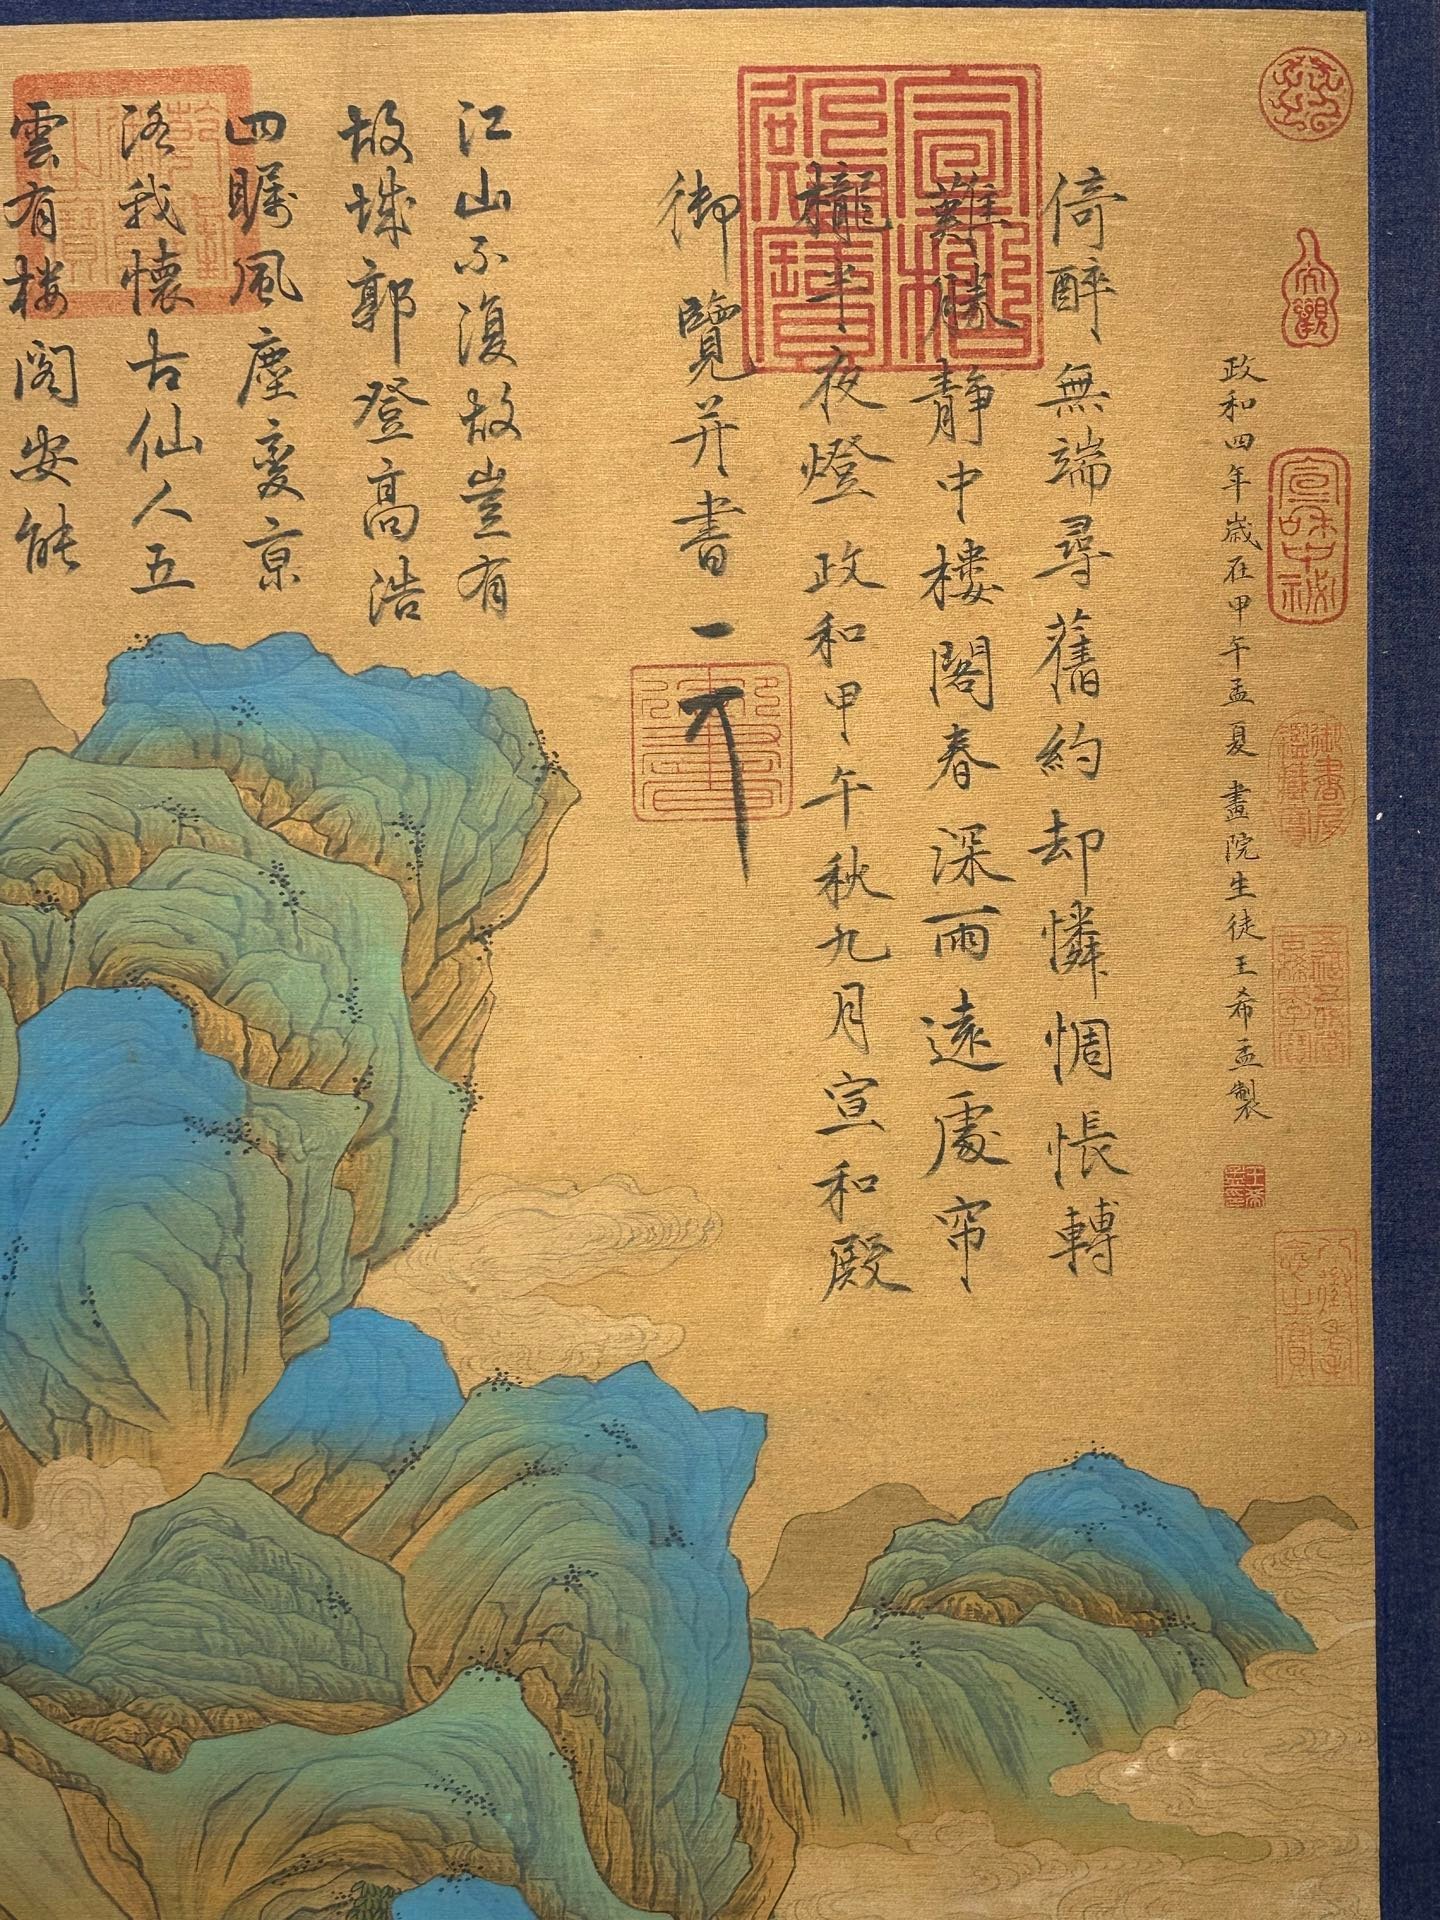 政和四年歲在甲午孟夏 畫院生徒王希孟製
王希孟印
大觀
倚醉無端尋舊約却憐惆悵轉
難勝靜中樓閣春深雨遠處帘
櫳半夜燈 政和甲午秋九月宣和殿
御覽并書一
江山不復故豈有
故城郭登高浩
四矚風塵變京
洛我懷古仙人五
雲有樓閣安能